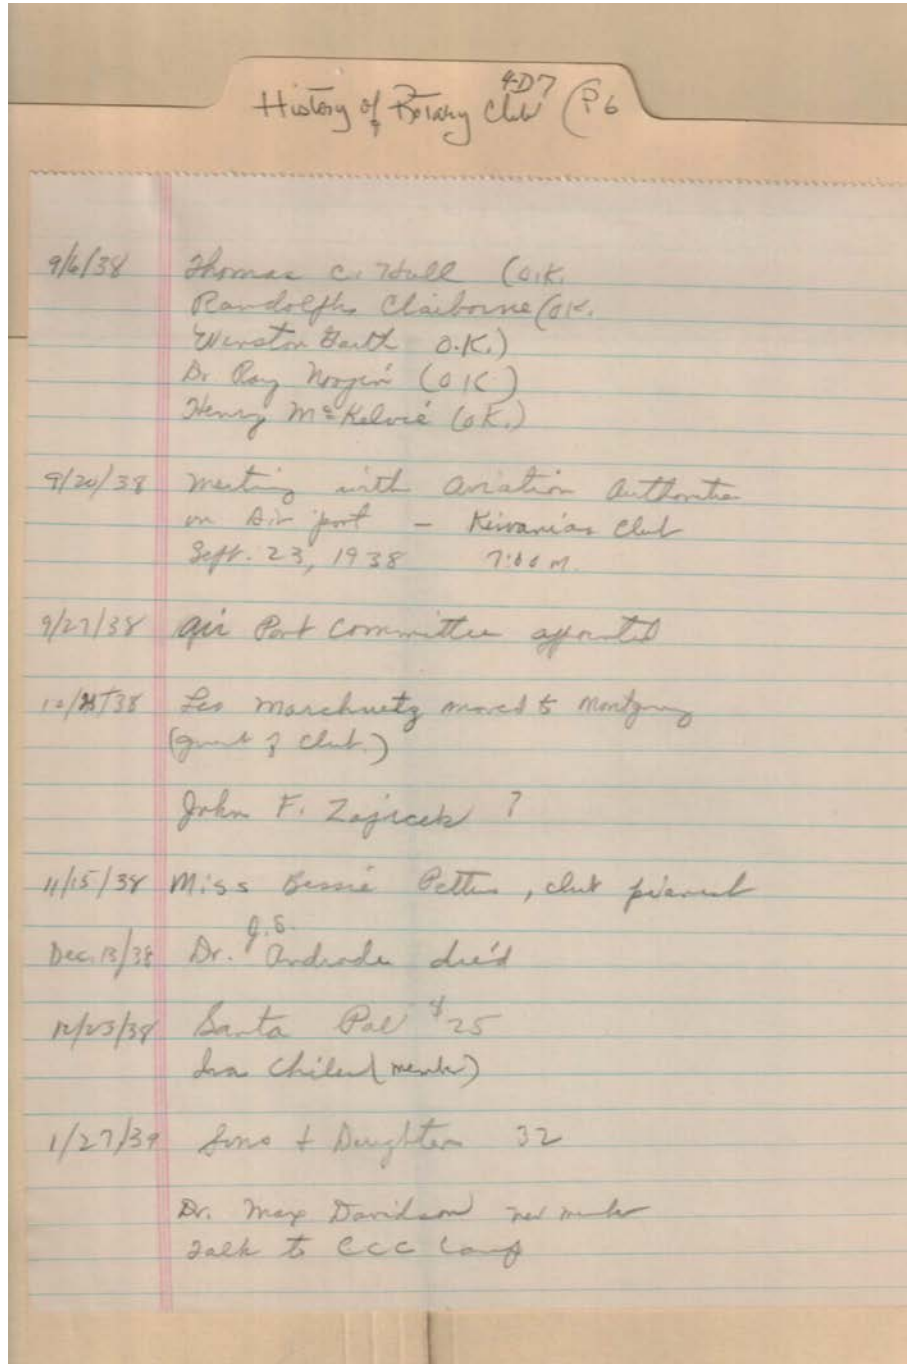 4-D7
History of Rotary Club (P6
9/6/38 Thomas C. Hall (O.K.
Randolph Claiborne (OK.
Winston Garth O.K.)
Dr Ray (OK)
Henry McKelvie (OK.)
9/20/38 Meeting with Aviation
on Air port - Kiwanias Club
Sept. 23, 1938 7:00 M.
9/27/38 Air Port Committee appointed
Leo Marchuetz moved to
(guest of Club.)
John F. Zajicek ?
11/15/38 Miss Bessie Pettus, club pianist
J.S.
Dec. 13/38 Dr. Andrade died
12/23/38 Santa Pal $25
Ira (memb)
1/27/39 Sons + Daughters 32
Dr. Max Davidson new
Talk to CCC Camp